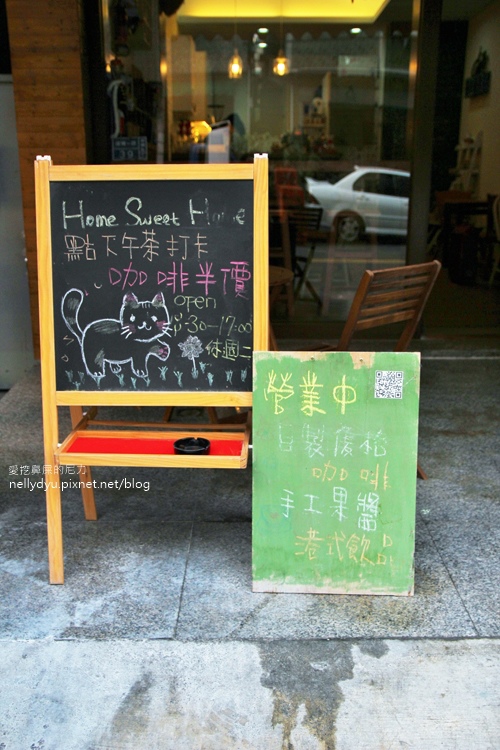 Home Sweet Home
點下午茶打卡
咖啡半價
open
:30-17:00
休週二
營業中
自製優格
咖啡
手工果醬
港式飲品
愛挖鼻屎的尼力
nellydyu.pixnet.net/blog